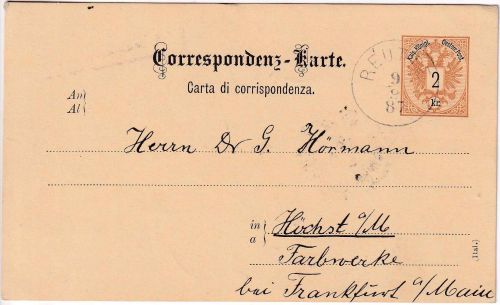 Correspondenz-Karte.
Carta di corrispondenza.
Kais. Königl. Oesterr. Post
2
kr.
9
87
An
Al
Herrn Dr G. Hörmann
in
a
Höchst a/M
Farbwerke
bei Frankfurt a/Main
(Ital.)